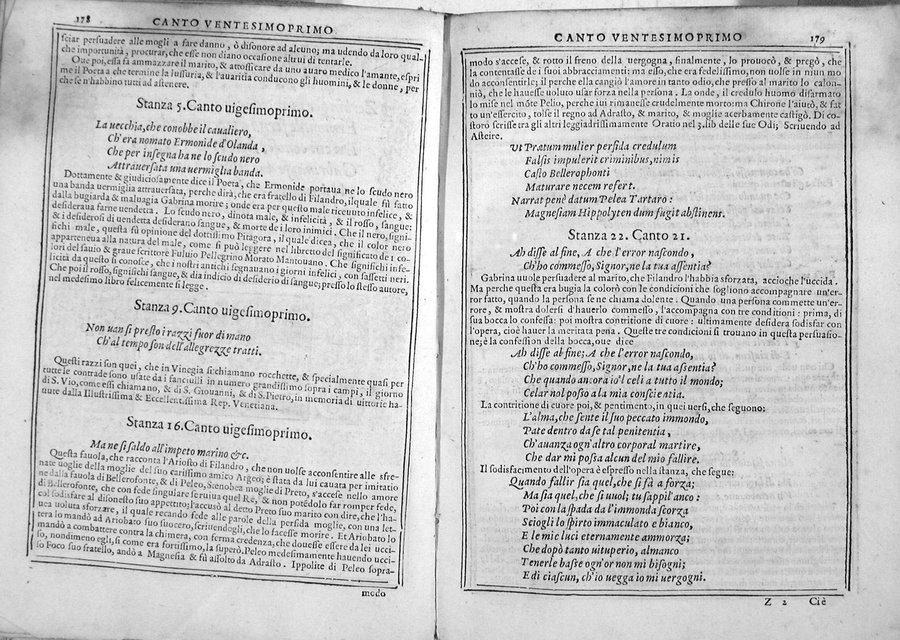 178
CANTO VENTESIMOPRIMO
sciar persuadere alle mogli a fare danno, ò disonore ad alcuno; ma udendo da loro qual-
che importunità, procurar, che esse non diano occasione altrui di tentarle.
Que poi, essa fà ammazzare il marito, & attossicare da uno auaro medico l'amante, espri
me il Poeta a che termine la lussuria, & l'auaritia conducono gli huomini, & le donne, per
che se n'habbino tutti ad astenere.
Stanza 5. Canto uigesimoprimo.
La uecchia, che conobbe il caualiero,
Ch'era nomato Ermonide d'Olanda,
Che per insegna ha ne lo scudo nero
Attrauersata una uermiglia banda.
Dottamente & giudiciosamente dice il Poeta, che Ermonide portaua ne lo scudo nero
una banda vermiglia attrauersata, perche dirà, che era fratello di Filandro, ilquale fù fatto
dalla bugiarda & maluagia Gabrina morire; onde era per questo male riceuuto infelice, &
desideraua farne uendetta. Lo scudo nero, dinota male, & infelicità, & il rosso, sangue:
& i desiderosi di uendetta desiderano sangue, & morte de i loro inimici. Che il nero, signi-
fichi male, questa fù opinione del dottissimo Pitagora, il quale dicea, che il color nero
apparteneua alla natura del male, come si può leggere nel libretto del significato de i co-
lori del sauio & graue scrittore Fuluio Pellegrino Morato Mantouano. Che significhi infe-
licità da questo si conosce, che i nostri antichi segnauano i giorni infelici, con sassetti neri.
Che poi il rosso, significhi sangue, & dia indicio di desiderio di sangue; presso lo stesso autore,
nel medesimo libro felicemente si legge.
Stanza 9. Canto uigesimoprimo.
Non uan sì presto i razzi fuor di mano
Ch'al tempo son dell'allegrezze tratti.
Questi razzi son quei, che in Vinegia si chiamano rocchette, & specialmente quasi per
tutte le contrade sono usate da i fanciulli in numero grandissimo sopra i campi, il giorno
di S. Vio, come essi chiamano, & di S. Giouanni, & di S. Pietro, in memoria di uittorie ha-
uute dalla Illustrissima & Eccellentissima Rep. Venetiana.
Stanza 16. Canto uigesimoprimo.
Ma ne sì saldo all'impeto marino &c.
Questa fauola, che racconta l'Ariosto di Filandro, che non uolse acconsentire alle sfre-
nate uoglie della moglie del suo carissimo amico Argeo; è stata da lui cauata per imitatio
ne dalla fauola di Bellerofonte, & di Peleo. Stenobea moglie di Preto, s'accese nello amore
di Bellerofonte, che con fede singulare seruiua quel Re, & non potẽdolo far romper fede,
col sodisfare al disonesto suo appetito; l'accusò al detto Preto suo marito con dire, che l'ha-
uea uoluta sforzare, il quale recando fede alle parole della perfida moglie, con una let-
tera lo mandò ad Ariobato suo suocero, scriuendogli, che lo facesse morire. Et Ariobato lo
mandò a combattere contra la chimera, con ferma credenza, che douesse essere da lei ucci-
so, nondimeno egli, sì come era fortissimo, la superò. Peleo medesimamente hauendo ucci-
so Foco suo fratello, andò a Magnesia & fù assolto da Adrasto. Ippolite di Peleo sopra-
modo
CANTO VENTESIMOPRIMO
179
modo s'accese, & rotto il freno della uergogna, finalmente, lo prouocò, & pregò, che
la contentasse de i suoi abbracciamenti: ma esso, che era fedelissimo, non uolse in niun mo
do acconsentirle; il perche ella cangiò l'amore in tanto odio, che presso al marito lo calon-
niò, che le hauesse uoluto usar forza nella persona. La onde, il credulo huomo disarmato
lo mise nel mõte Pelio, perche iui rimanesse crudelmente morto: ma Chirone l'aiutò, & fat
to un'essercito, tolse il regno ad Adrasto, & marito, & moglie acerbamente castigò. Di co-
storo scrisse tra gli altri leggiadrissimamente Oratio nel 3. lib delle sue Odi; Scriuendo ad
Asteire.
Vt Prætum mulier perfida credulum
Falsis impulerit criminibus, nimis
Casto Bellerophonti
Maturare necem refert.
Narrat penè datum Pelea Tartaro:
Magnessam Hippolyten dum fugit abstinens.
Stanza 22. Canto 21.
Ah disse al fine, A che l'error nascondo,
Ch'ho commesso, Signor, ne la tua assentia?
Gabrina uuole persuadere al marito, che Filandro l'habbia sforzata, accioche l'uccida.
Ma perche questa era bugia la colorò con le condicioni che sogliono accompagnare un'er-
ror fatto, quando la persona se ne chiama dolente. Quando una persona commette un'er-
rore, & mostra dolersi d'hauerlo commesso, l'accompagna con tre conditioni: prima, di
sua bocca lo confessa: poi mostra contritione di cuore: ultimamente desidera sodisfar con
l'opera, cioè hauer la meritata pena. Queste tre condicioni si trouano in questa persuasio-
ne; è la confession della bocca, oue dice
Ah disse al fine; A che l'error nascondo,
Ch'ho commesso, Signor, ne la tua assentia?
Che quando ancora io'l celi a tutto il mondo;
Celar nol posso a la mia conscientia.
La contritione di cuore poi, & pentimento, in quei uersi, che seguono:
L'alma, che sente il suo peccato immondo,
Pate dentro da se tal penitentia,
Ch'auanza ogn'altro corporal martire,
Che dar mi possa alcun del mio fallire.
Il sodisfacimento dell'opera è espresso nella stanza, che segue;
Quando fallir sia quel, che si fà a forza;
Ma sia quel, che si uuol; tu sappil'anco:
Poi con la spada da l'immonda scorza
Sciogli lo spirto immaculato e bianco,
E le mie luci eternamente ammorza;
Che dopò tanto uituperio, almanco
Tenerle basse ogn'or non mi bisogni;
E di ciascun, ch'io uegga io mi uergogni.
Z 2 Ciè